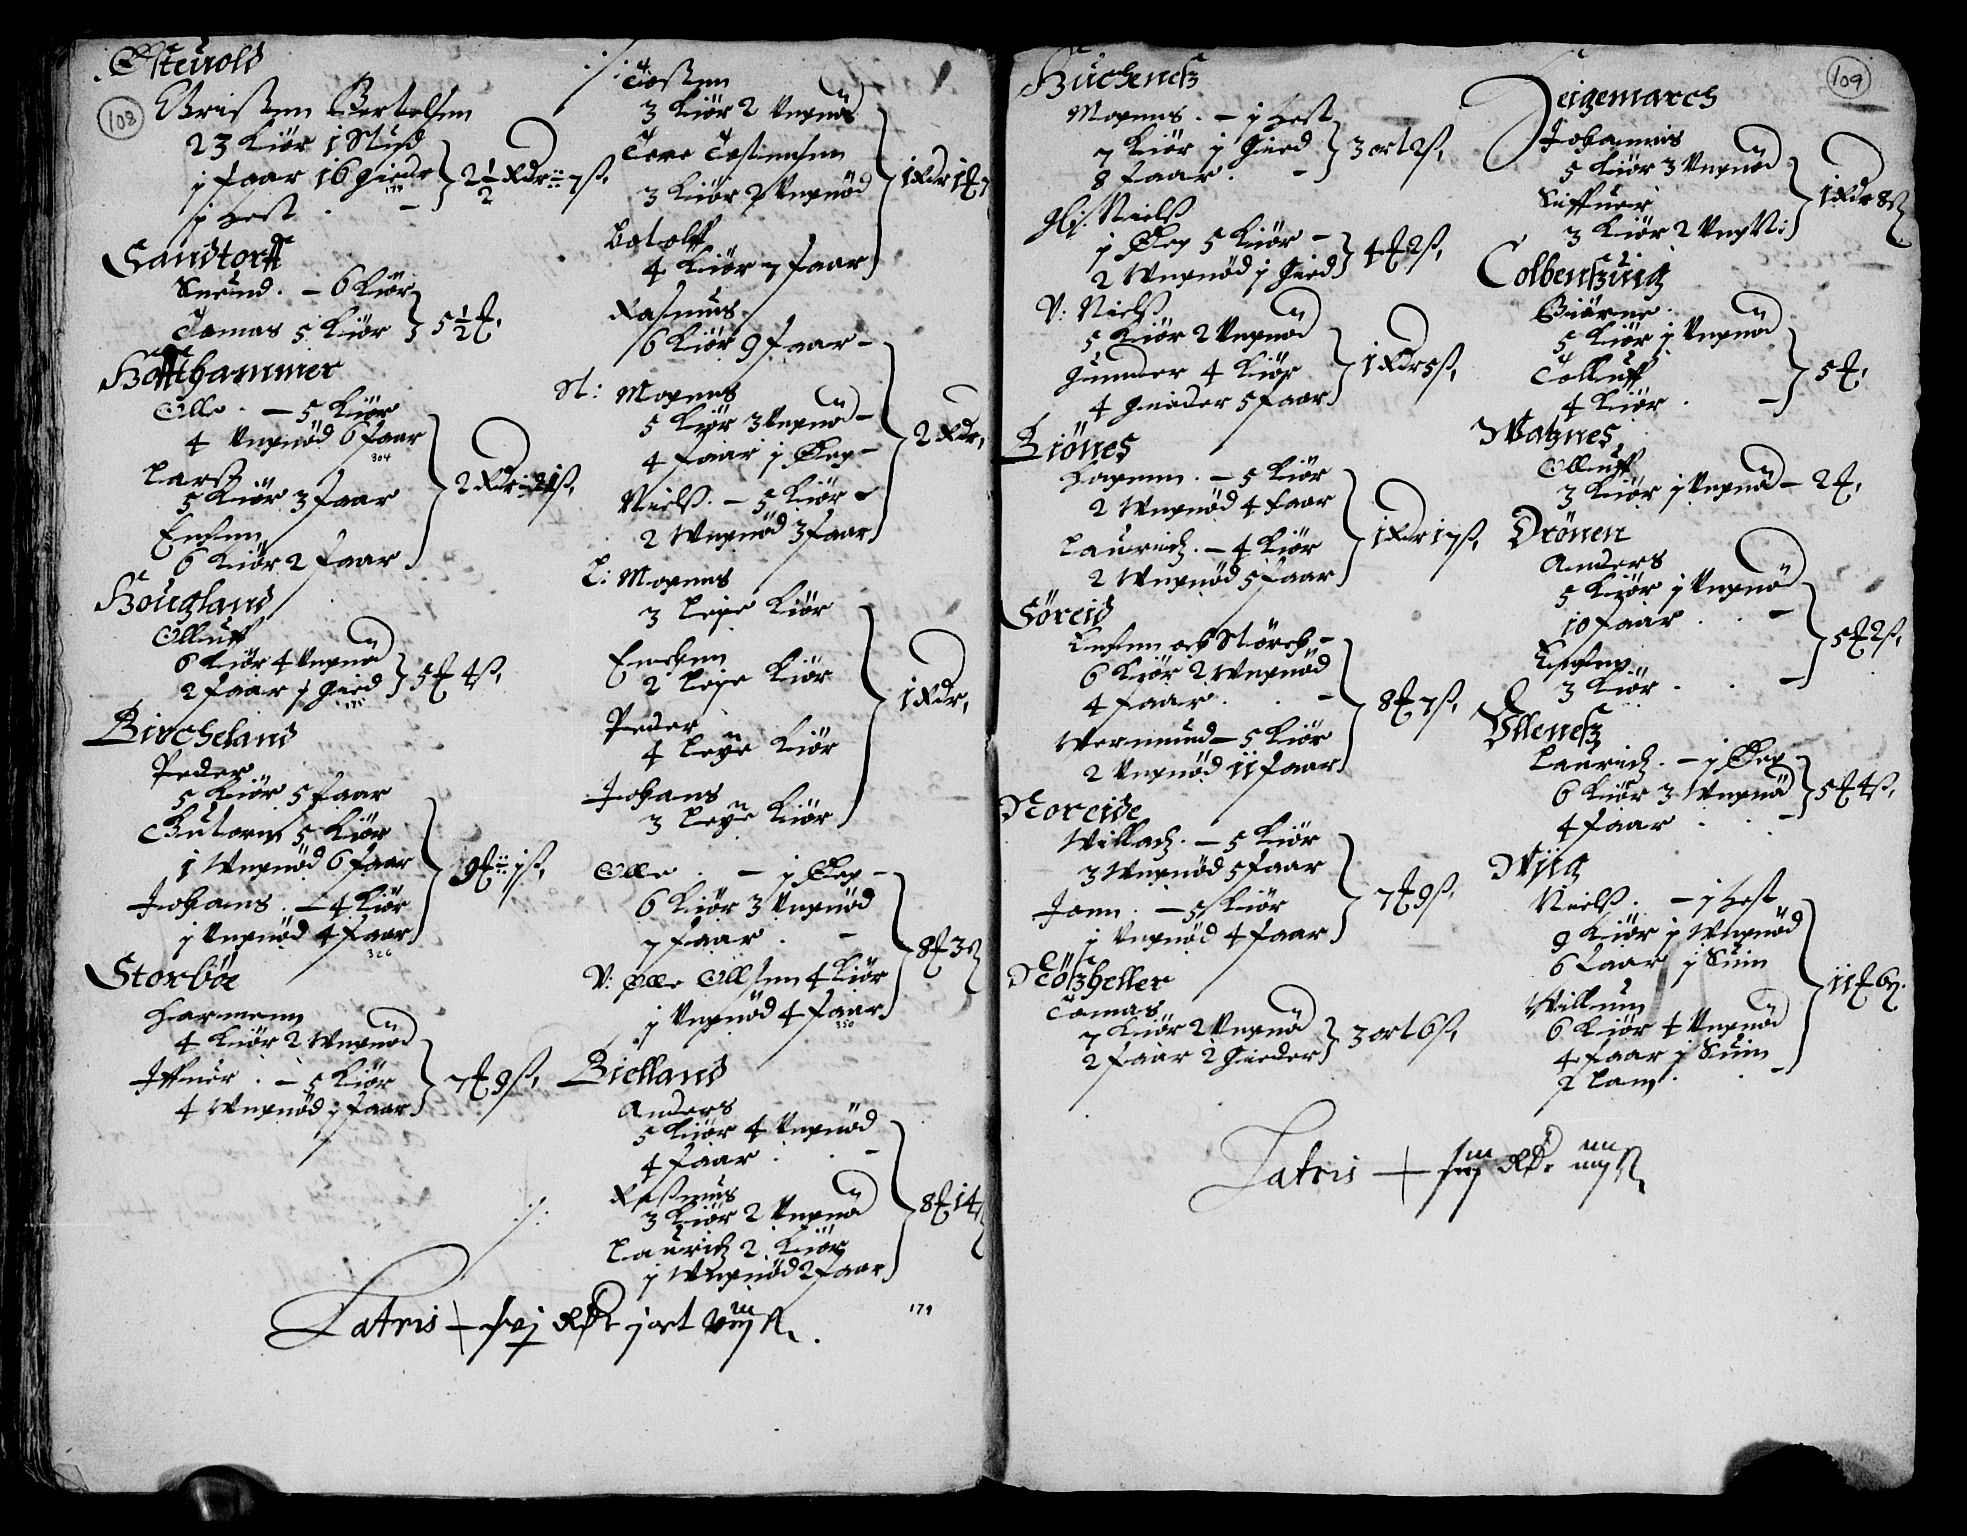 108
Østeuold
Christen Bertelsen
23 Kiör 1 Stud
j faar 16 gieder
j Hest
2½ Rdr 7 ß,
Sandtorff
Sueind. – 6 Kiör
Tomas 5 Kiör
5½ ₰,
Hoffthammer
Olle. – 5 Kiör
4 Vngnöd 6 faar
304
Larß
5 Kiör 3 faar
6 Kiör 2 faar
2 Rdr 21 ß,
Hougland
Olluff
6 Kiör 4 Vngnöd
2 faar j gied
175
5 ₰ 4 ß,
Bircheland
Peder
5 Kiör 5 faar
Gutorm 5 Kiör
1 Wngnöd 6 faar
Johans. – 4 Kiör
j Vngnöd 4 faar
326
9 ₰ 7 ß,
Storböe
Harmenn
4 Kiör 2 Wngnöd
Iffuer. – 5 Kiör
4 Wngnöd j faar
7 ₰ 9 ß,
·/·
Tosten
3 Kiör 2 Vngnöd
Tore Tostensen
3 Kiör 2 Vngnöd
Botolff
4 Kiör 7 faar
1 Rdr 1 ₰ 7
Rasmus.
6 Kiör 9 faar –
St: Mogens
5 Kiör 3 Vngnöd –
4 faar j Øeg –
Nielß. – 5 Kiör
2 Wngnöd 3 faar
2 Rdr,
L: Mogens
3 Leye Kiör
2 Leye Kiör
Peder
4 Leye Kiör
Johans
3 Leye Kiör
1 Rdr,
Olle. – j Øeg –
6 Kiör 3 Vngnöd
7 faar. –
V: Olle Ollsen 4 Kiör
j Vngnöd 4 faar
350
8 ₰ 3 ß
Bielland
Anders
5 Kiör 4 Vngnöd
4 faar. . –
Rasmus
3 Kiör 2 Vngnöd
Lauridz 2 Kiör
j Wngnöd 2 faar
8 ₰ 14 ß
·/·
Latris – Rdr j ort ß
179
109
Buchenes
Mogens. – j Hest
7 Kiör j Gied
8 faar. –
3 ort 2 ß,
Gl: Nielß
j Øeg 5 Kiör –
2 Wngnöd j Gied
4 ₰ 2 ß,
V: Nielß
5 Kiör 2 Vngnöd
Gunder 4 Kiör
4 Gieder 5 faar
1 Rdr 5 ß,
Biönes
Haagenn. – 5 Kiör
2 Wngnöd 4 faar
Lauridz. – 4 Kiör
2 Wngnöd 5 faar
1 Rdr 17 ß,
Söreid
6 Kiör 2 Wngnöd
4 faar. . –
Wermund – 5 Kiör
2 Vngnöd 11 faar
8 ₰ 7 ß,
Noreide
Willadz. – 5 Kiör
3 Wngnöd 5 faar
Jonn. – 5 Kiör
j Vngnöd 4 faar
7 ₰ 9 ß,
Nötzheller
Tomas
7 Kiör 2 Vngnöd
2 faar 2 Gieder
3 ort 6 ß,
Teigemarch
Johannis
5 Kiör 3 Vngnöd
Siffuer
3 Kiör 2 Vng N:
1 Rdr 8 ß
Colbenßuig
Biörne.
5 Kiör j Vngnöd
Tolluff
4 Kiör. –
5 ₰,
Watznes
Olluff
3 Kiör j Vngnöd – 2 ₰,
Drönen
Anders
5 Kiör j Vngnöd
10 faar. . –
3 Kiör. . –
5 ₰ 2 ß,
Lauridz. – j Øeg
6 Kiör 3 Wngnöd
4 faar. .
5 ₰ 4 ß,
Wiig
Nielß. – j Hest
9 Kiör j Wngnöd
6 faar j Suin
Willum
6 Kiör 4 Vngnöd
4 faar j Suin
2 Lam. . –
11 ₰ 6 ß.
Latris – Rdr ß